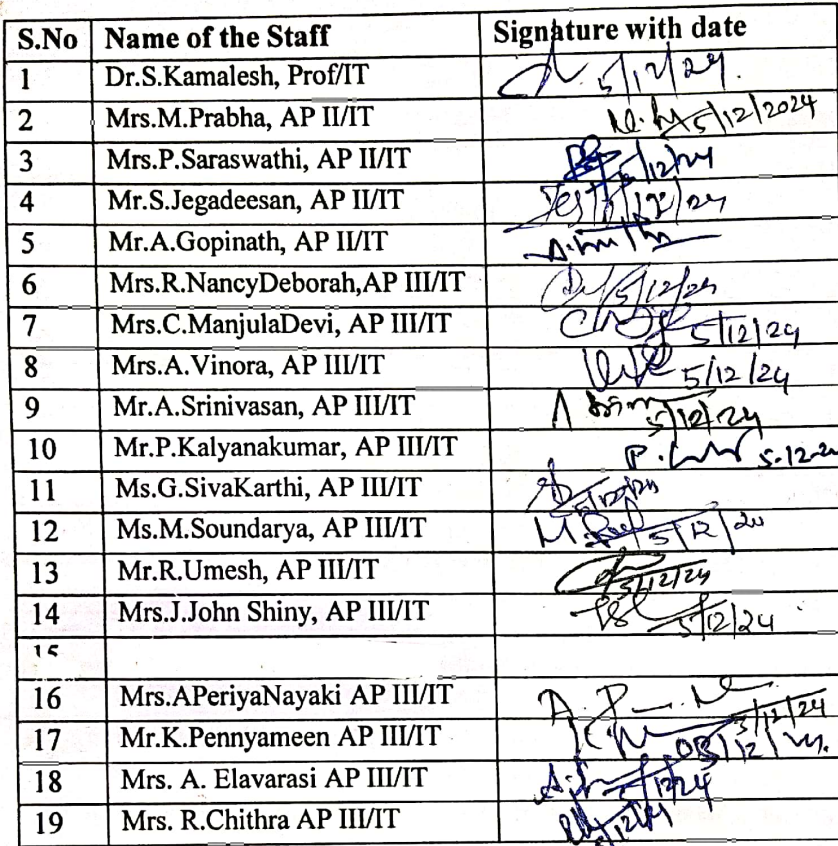 S.No Name of the Staff Signature with date
1 Dr.S.Kamalesh, Prof/IT 5/12/24.
2 Mrs.M.Prabha, AP II/IT 5/12/2024
3 Mrs.P.Saraswathi, AP II/IT 5/12/24
4 Mr.S.Jegadeesan, AP II/IT /12/24
5 Mr.A.Gopinath, AP II/IT
6 Mrs.R.NancyDeborah,AP III/IT 5/12/24
7 Mrs.C.ManjulaDevi, AP III/IT 5/12/24
8 Mrs.A.Vinora, AP III/IT 5/12/24
9 Mr.A.Srinivasan, AP III/IT 5/12/24
10 Mr.P.Kalyanakumar, AP III/IT P. 5-12-2
11 Ms.G.SivaKarthi, AP III/IT 5/12/24
12 Ms.M.Soundarya, AP III/IT M 5/12/24
13 Mr.R.Umesh, AP III/IT 5/12/24
14 Mrs.J.John Shiny, AP III/IT 5/12/24
15
16 Mrs.APeriyaNayaki AP III/IT A. P 5/12/24
17 Mr.K.Pennyameen AP III/IT 05/12/24.
18 Mrs. A. Elavarasi AP III/IT 5/12/24
19 Mrs. R.Chithra AP III/IT 5/12/24